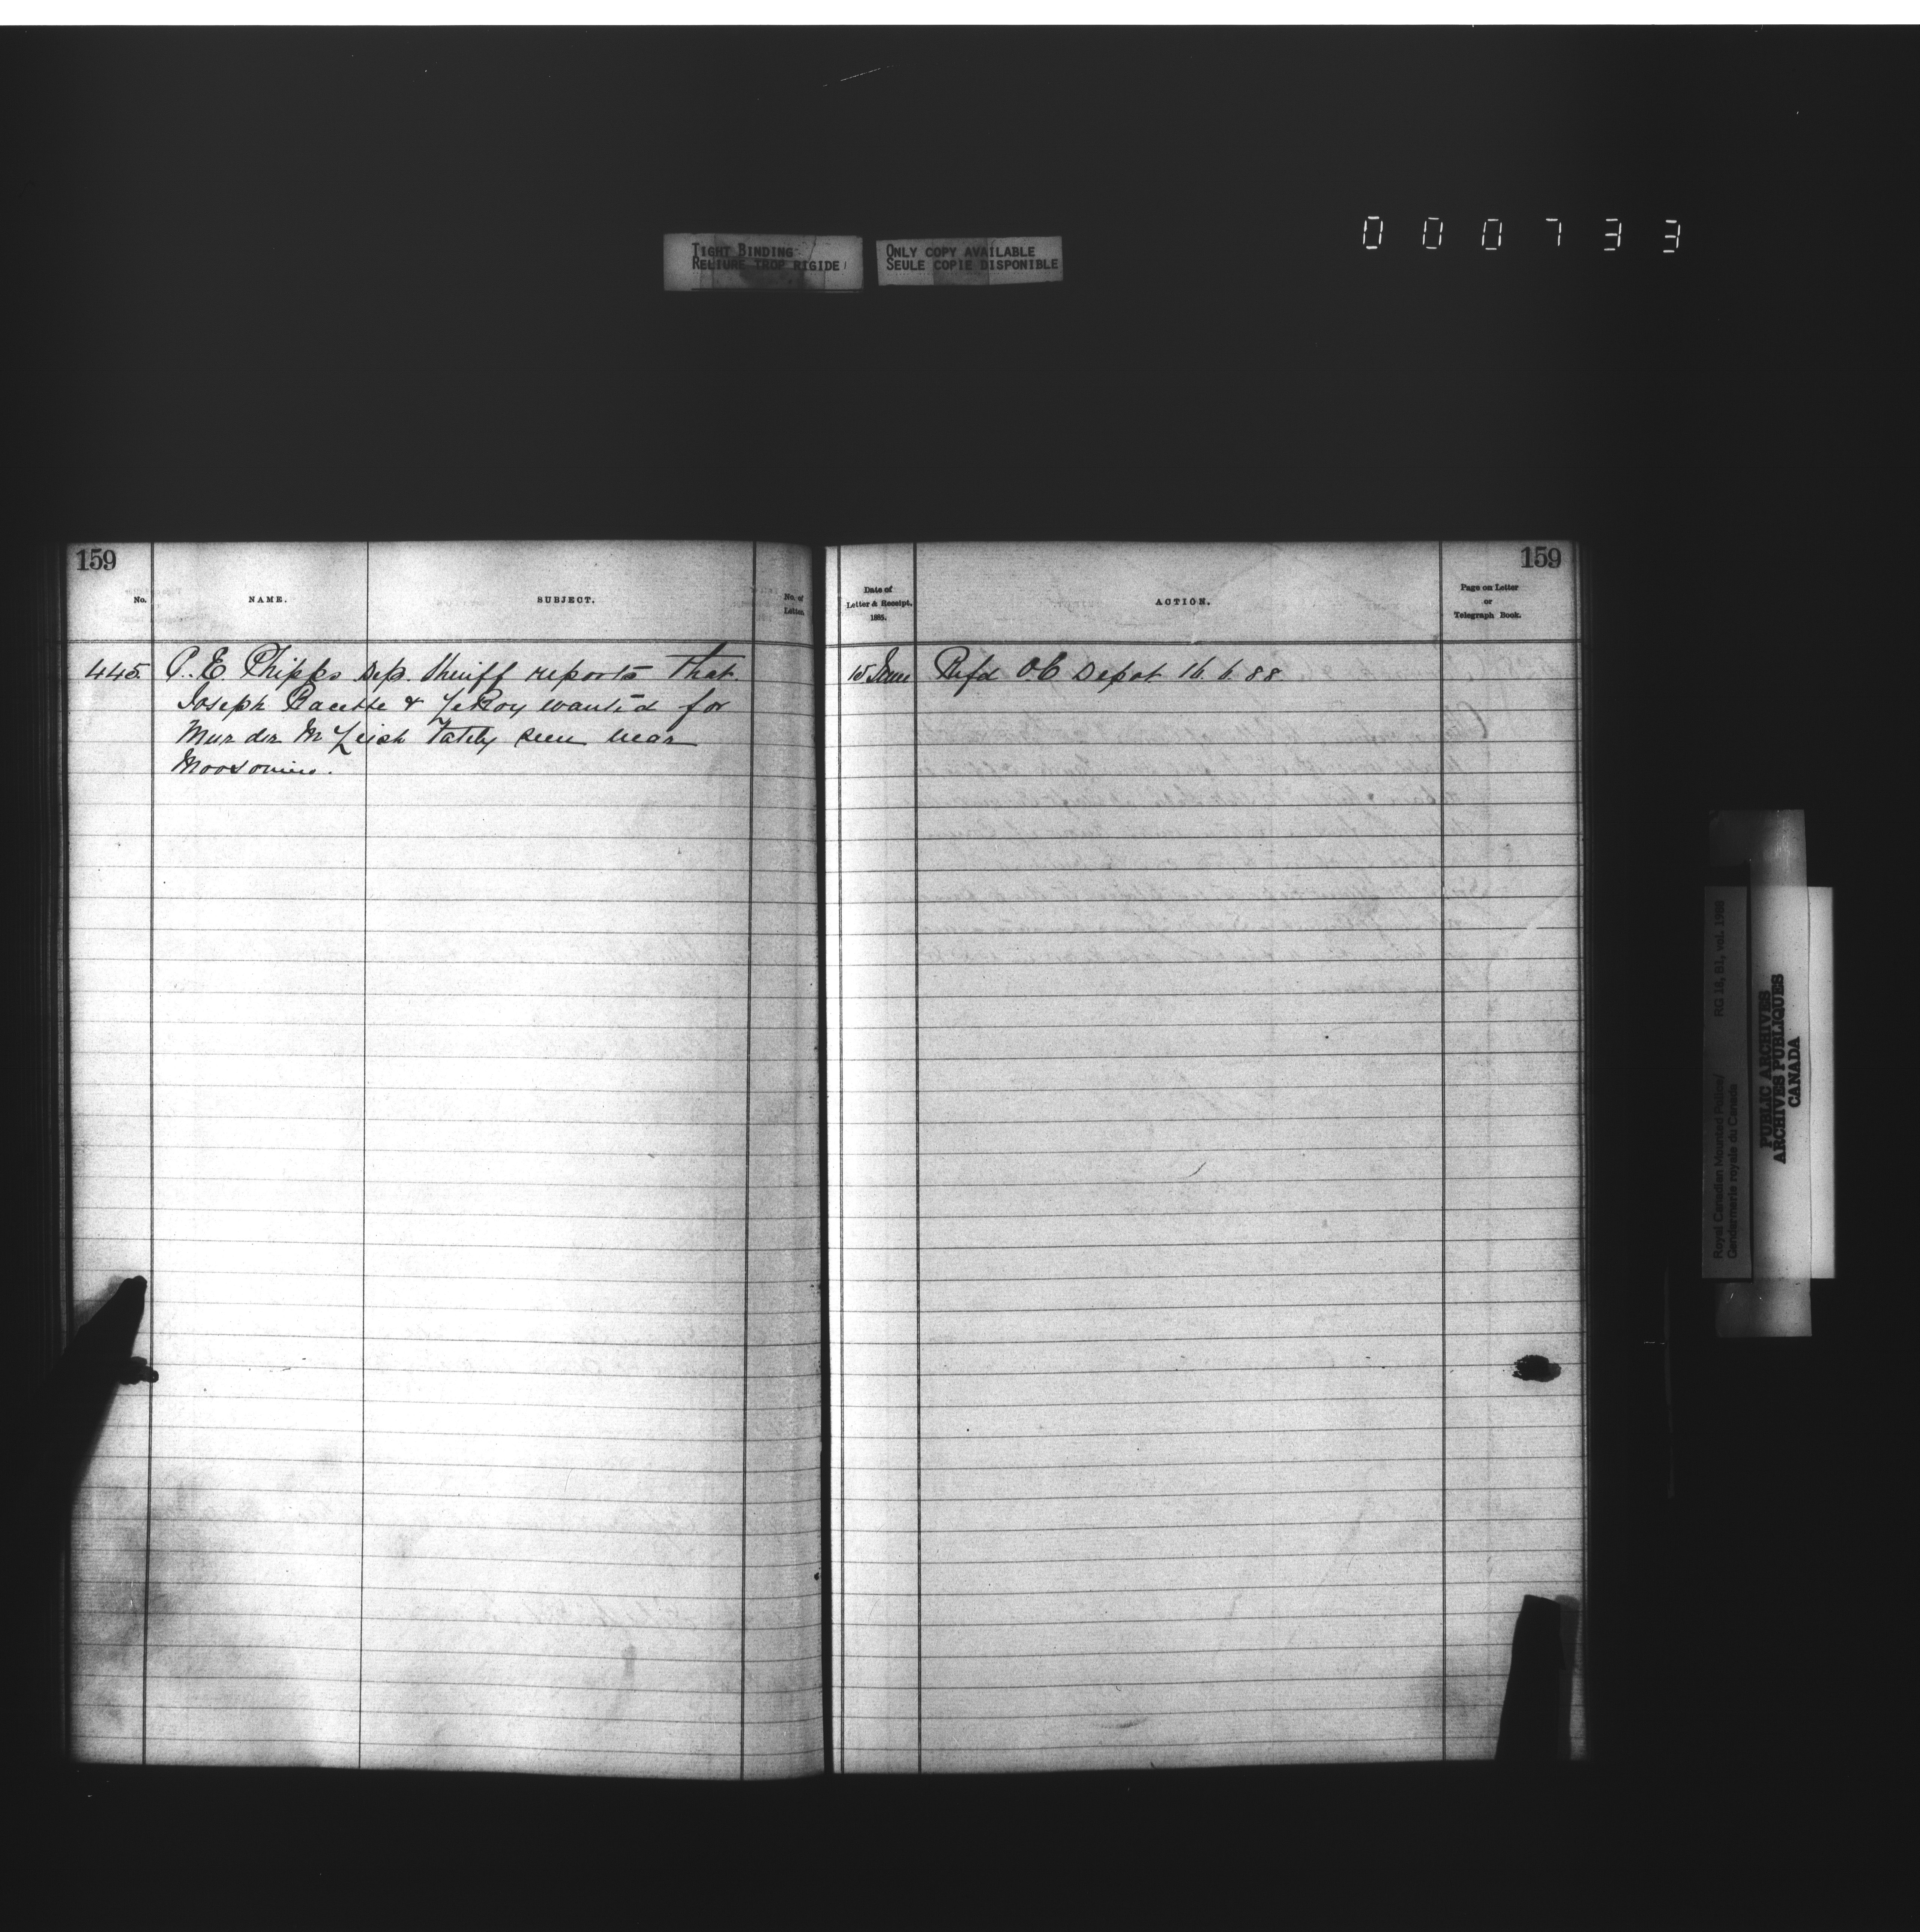 000733
TIGHT BINDING
RELIURE TROP RIGIDE
ONLY COPY AVAILABLE
SEULE COPIE DISPONIBLE
159
No.
NAME.
SUBJECT.
No. of
Letter.
445. P. E. Phipps Dep. Sheriff reports that
Joseph Racette & LeRoy wanted for
Murder McLeish lately seen near
Moosomin.
159
Date of
Letter & Receipt.
1885.
ACTION.
Page on Letter
or
Telegraph Book.
15 June Refd O.C Depot 16.6.88
Royal Canadian Mounted Police/
Gendarmerie royale du Canada
RG 18, B1, vol. 1988
PUBLIC ARCHIVES
ARCHIVES PUBLIQUES
CANADA